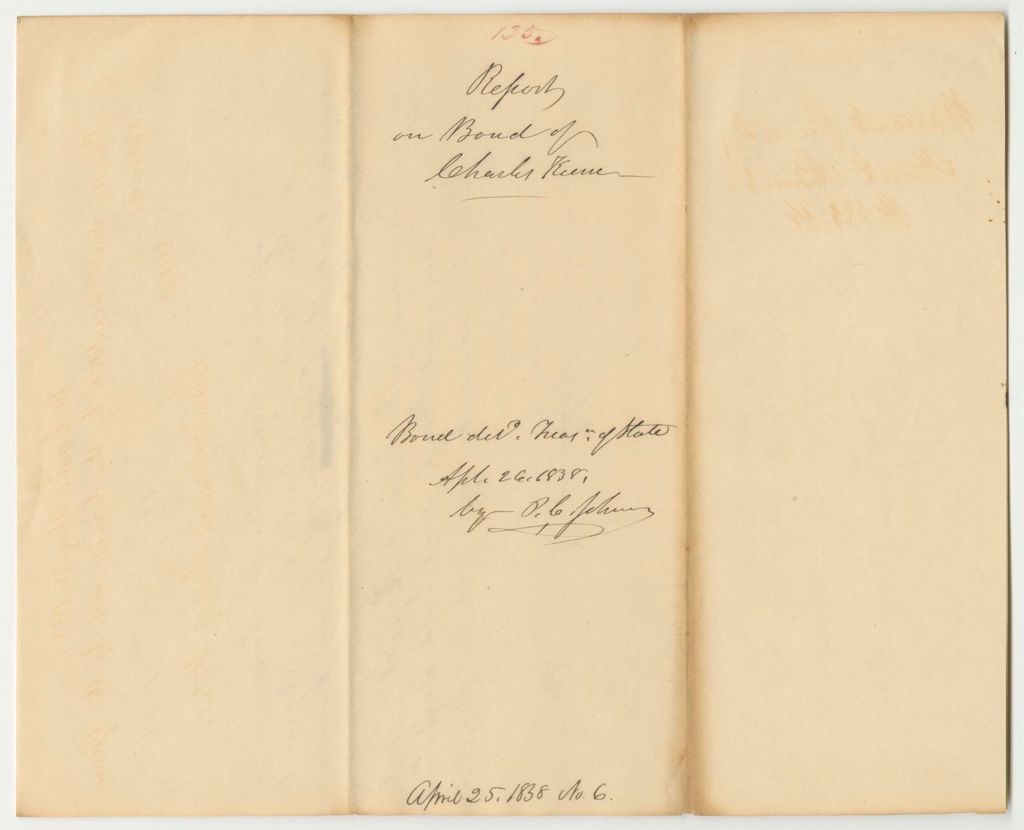 135.
Report
on Bond of
Charles Keene
Bond deld. Treasr. of State
Apl. 26. 1838.
by P. C. Johnson
April 25. 1838 No. 6.